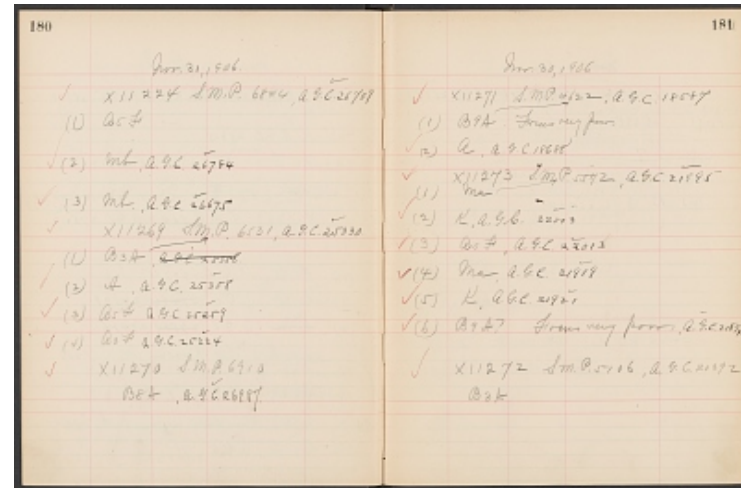 180
Nov. 30, 1906.
X11224 S.M.P. 6844, A.G.C. 26759
(1) B5F
(2) Mb, A.G.C. 26784
(3) Mb, A.G.C. 26675
X11269 S.M.P. 6131, A.G.C. 25330
(1) B3A,
(2) A, A.G.C. 25358
(3) A5F A.G.C. 25259
(4) A5F A.G.C. 25224
X11270 S.M.P. 6910
B8A, A.G.C. 26887
181
Nov. 30, 1906
X11271 S.M.P. 4622, A.G.C. 18587
(1) B9A Focus very poor
(2) A, A.G.C. 18688
X11273 S.M.P. 5592, A.G.C. 21895
(1) Ma
(2) K, A.G.C. 22003
(3) A5F, A.G.C. 22013
(4) Ma, A.G.C. 21959
(5) K, A.G.C. 21921
(6) B9A? Focus very poor, A.G.C.
X11272 S.M.P. 5106, A.G.C.
B8A